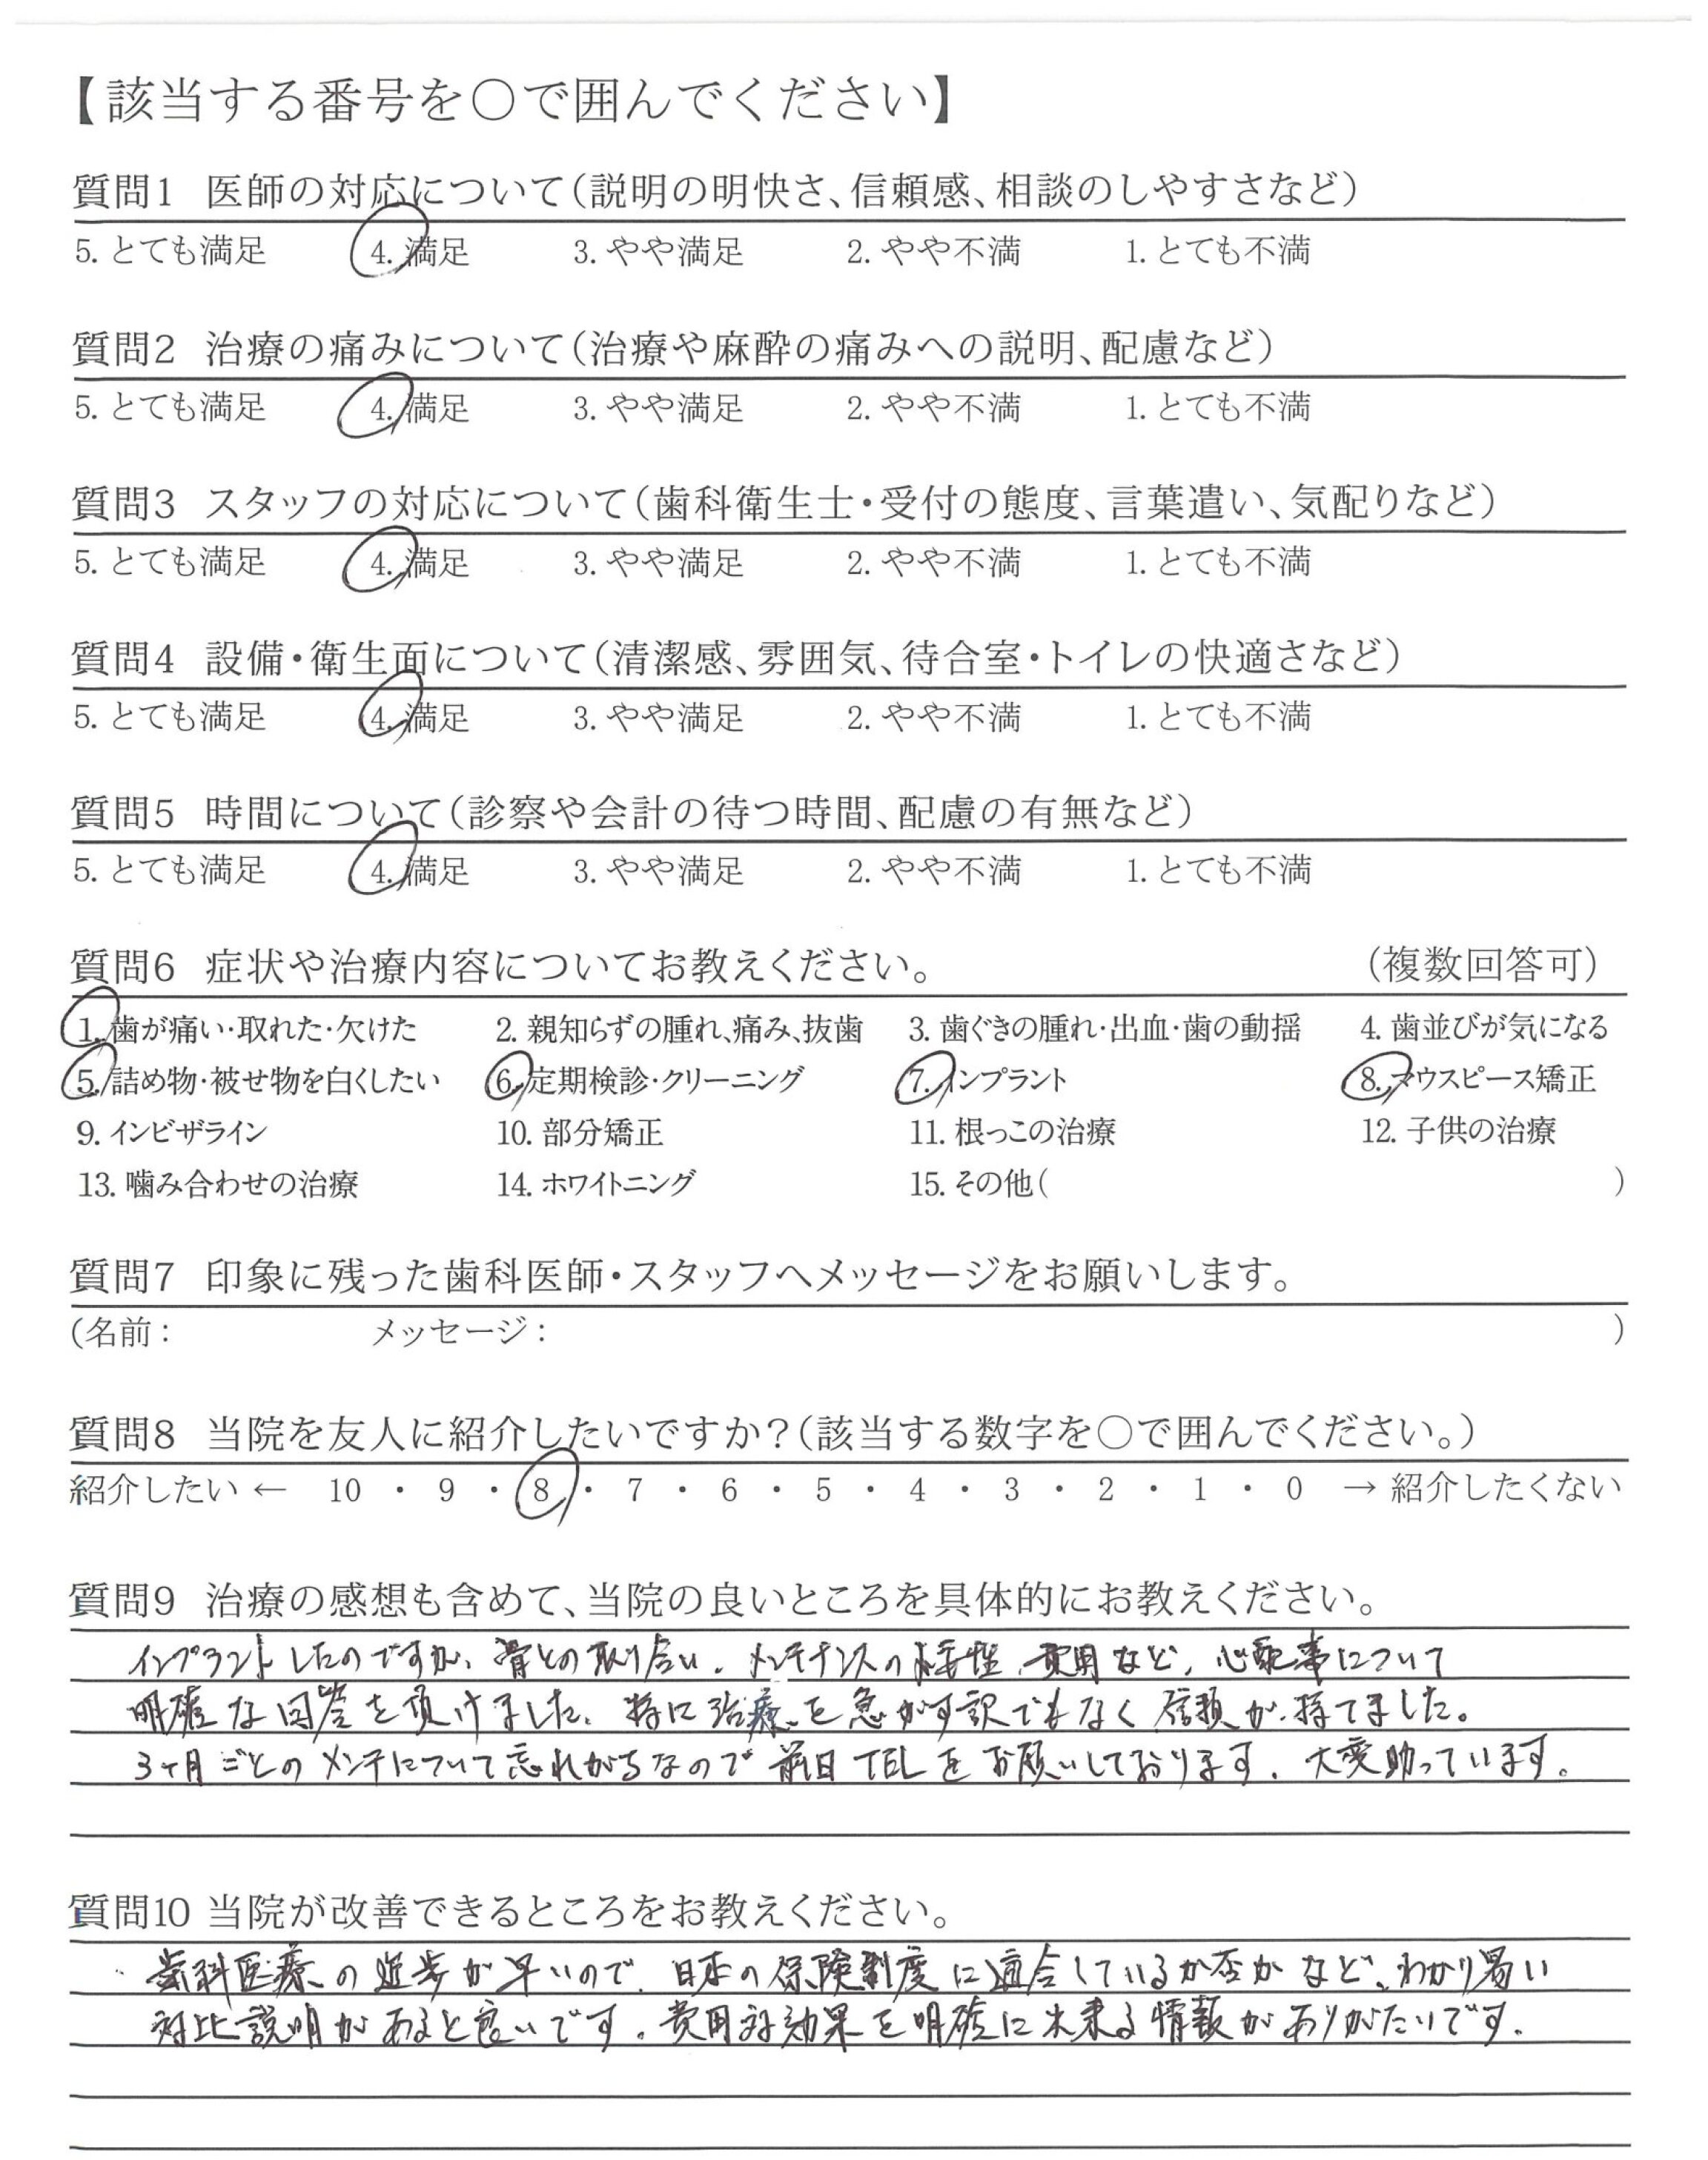 【該当する番号を〇で囲んでください】
質問1 医師の対応について(説明の明快さ、信頼感、相談のしやすさなど)
5. とても満足 4. 満足 3. やや満足 2. やや不満 1. とても不満
質問2 治療の痛みについて(治療や麻酔の痛みへの説明、配慮など)
5. とても満足 4. 満足 3. やや満足 2. やや不満 1. とても不満
質問3 スタッフの対応について(歯科衛生士・受付の態度、言葉遣い、気配りなど)
5. とても満足 4. 満足 3. やや満足 2. やや不満 1. とても不満
質問4 設備・衛生面について(清潔感、雰囲気、待合室・トイレの快適さなど)
5. とても満足 4. 満足 3. やや満足 2. やや不満 1. とても不満
質問5 時間について(診察や会計の待つ時間、配慮の有無など)
5. とても満足 4. 満足 3. やや満足 2. やや不満 1. とても不満
質問6 症状や治療内容についてお教えください。 (複数回答可)
1. 歯が痛い・取れた・欠けた 2. 親知らずの腫れ、痛み、抜歯 3. 歯ぐきの腫れ・出血・歯の動揺 4. 歯並びが気になる
5. 詰め物・被せ物を白くしたい 6. 定期検診・クリーニング 7. インプラント 8. マウスピース矯正
9. インビザライン 10. 部分矯正 11. 根っこの治療 12. 子供の治療
13. 噛み合わせの治療 14. ホワイトニング 15. その他( )
質問7 印象に残った歯科医師・スタッフへメッセージをお願いします。
(名前: メッセージ: )
質問8 当院を友人に紹介したいですか?(該当する数字を〇で囲んでください。)
紹介したい ← 10 ・ 9 ・ 8 ・ 7 ・ 6 ・ 5 ・ 4 ・ 3 ・ 2 ・ 1 ・ 0 → 紹介したくない
質問9 治療の感想も含めて、当院の良いところを具体的にお教えください。
インプラントしたのですが、骨との取り合い、メンテナンスの性、費用など、心配事について
明確な回答を頂けました。特に治療を急がす訳でもなく信頼が持てました。
3ヶ月ごとのメンテについて忘れがちなので前日TELをお願いしております。大変助っています。
質問10 当院が改善できるところをお教えください。
歯科医療の進歩が早いので、日本の保険制度に適合しているか否かなど、わかり易い
対比説明があると良いです。費用対効果を明確に出来る情報がありがたいです。